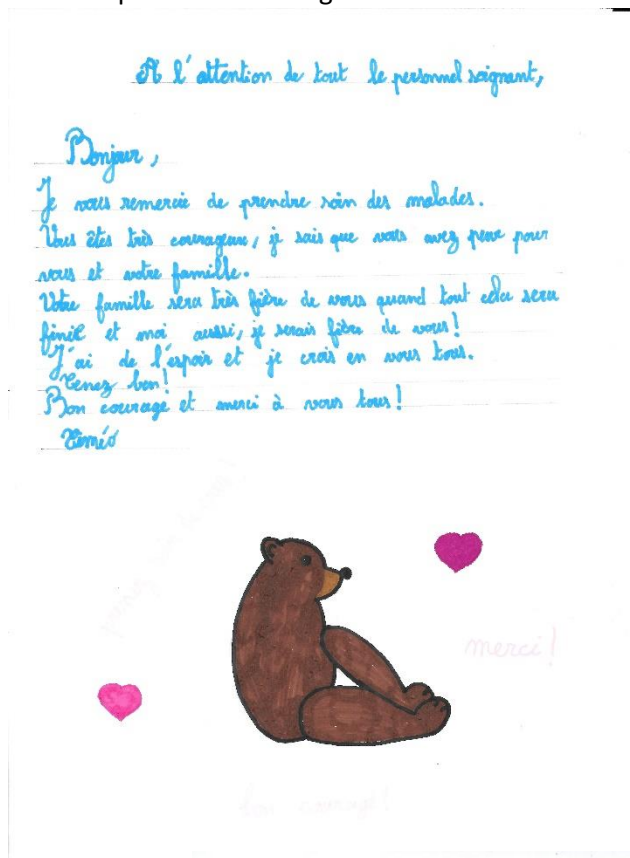 A l'attention de tout le personnel soignant,
Bonjour,
Je vous remercie de prendre soin des malades.
Vous êtes très courageux, je sais que vous avez peur pour
vous et votre famille.
Votre famille sera très fière de vous quand tout cela sera
finie et moi aussi, je serais fière de vous!
J'ai de l'espoir et je crois en vous tous.
Tenez bon!
Bon courage et merci à vous tous!
Timéo
prenez soin de vous!
merci!
bon courage!